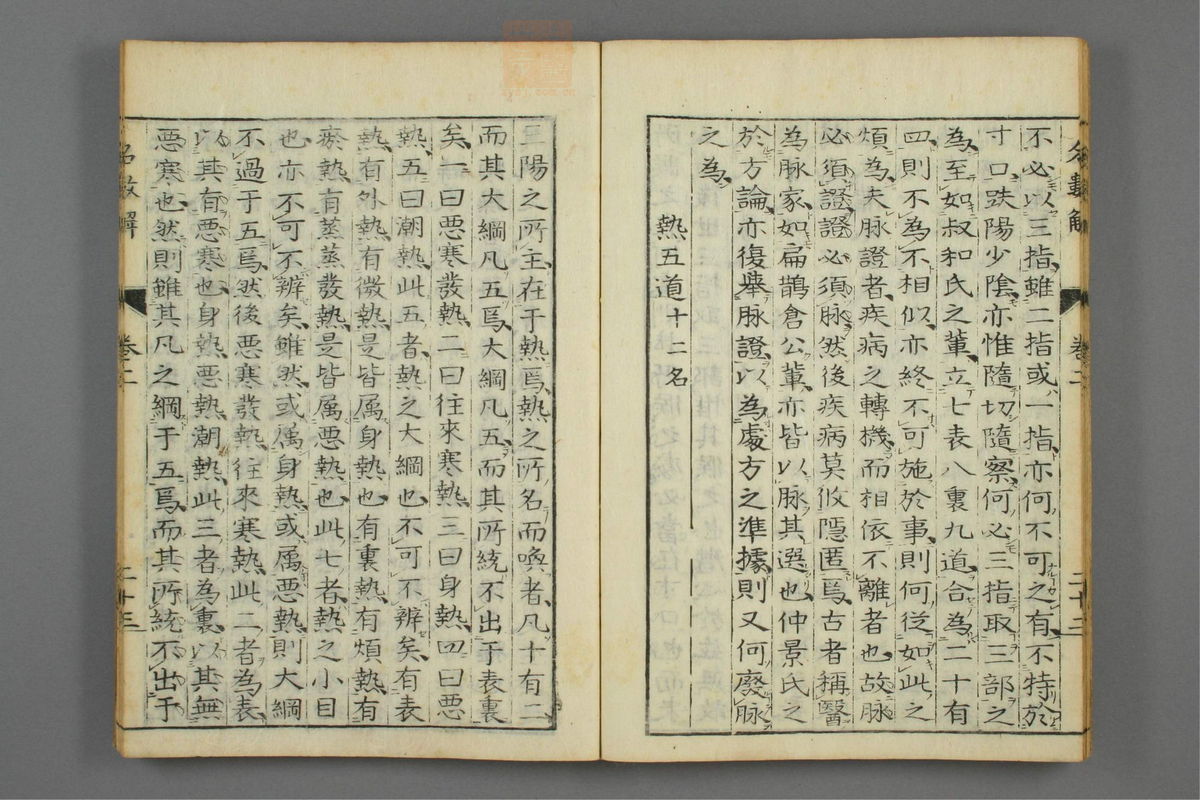 不必以三指雖二指或一指亦何不可之有不特於
寸口趺陽少陰亦惟隨切隨察何必三指取三部之
為至如叔和氏之軰立七表八裏九道合為二十有
四則不為不相似亦終不可施於事則何從如此之
煩為夫脉證者疾病之轉機而相依不離者也故脉
必須證證必須脉然後疾病莫攸隱匿焉古者稱醫
為脉家如扁鵲倉公軰亦皆以脉其選也仲景氏之
於方論亦復舉脉證以為處方之準據則又何廢脉
之為
熱五道十二名
三陽之所主在于熱焉熱之所名而喚者凡十有二
而其大綱凡五焉大綱凡五而其所統不出于表裏
矣一曰惡寒發熱二曰往來寒熱三曰身熱四曰惡
熱五曰潮熱此五者熱之大綱也不可不辨矣有表
熱有外熱有微熱是皆属身熱也有裏熱有煩熱有
瘀熱有蒸蒸發熱是皆属惡熱也此七者熱之小目
也亦不可不辨矣雖然或属身熱或属惡熱則大綱
不過于五焉然後惡寒發熱往來寒熱此二者為表
以其有惡寒也身熱惡熱潮熱此三者為裏以其無
惡寒也然則雖其凡之綱于五焉而其所統不出于
名數解
卷二
二十三